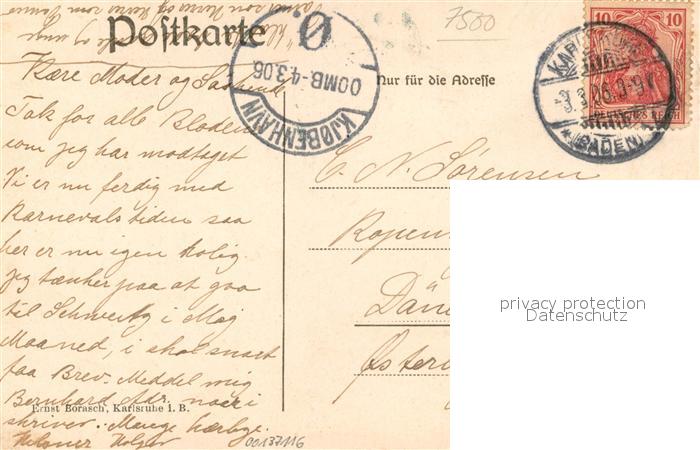 Postkarte
7500
Nur für die Adresse
Ø.
OOMB - 4.3.06
KJØBENHAVN
KARLSRUHE
-3.3.06.8-9V
*(BADEN)
10 10
DEUTSCHES REICH
Kære Moder og
Tak for alle Bladene
som jeg har modtaget
Vi er nu færdig med
Karnevals tiden saa
her er nu igen rolig.
Jeg tænker paa at gaa
til Schweitz i Maj
Maaned, i skal snart
faa Brev. Meddel mig
Bernhard Adr. naar i
skriver. Mange
Hilsner Holger
Ernst Borasch, Karlsruhe i. B.
00137116
C. N. Sørensen
Kopen
Dän
Østerb
privacy protection
Datenschutz